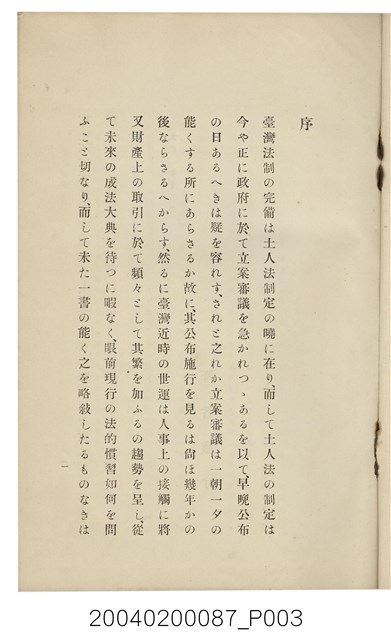 序
臺灣法制の完備は土人法制定の曉に在り、而して土人法の制定は
今や正に政府に於て立案審議を急かれつゝあるを以て、早晩公布
の日あるへきは疑を容れす、されと之れか立案審議は一朝一夕の
能くする所にあらさるか故に、其公布施行を見るは尙ほ幾年かの
後ならさるへからす、然るに臺灣近時の世運は人事上の接觸に將
又財產上の取引に於て頻々として其繁を加ふるの趨勢を呈し、從
て未來の成法大典を待つに暇なく、眼前現行の法的慣習如何を問
ふこと切なり、而して未た一書の能く之を略敍したるものなきは
一
20040200087_P003